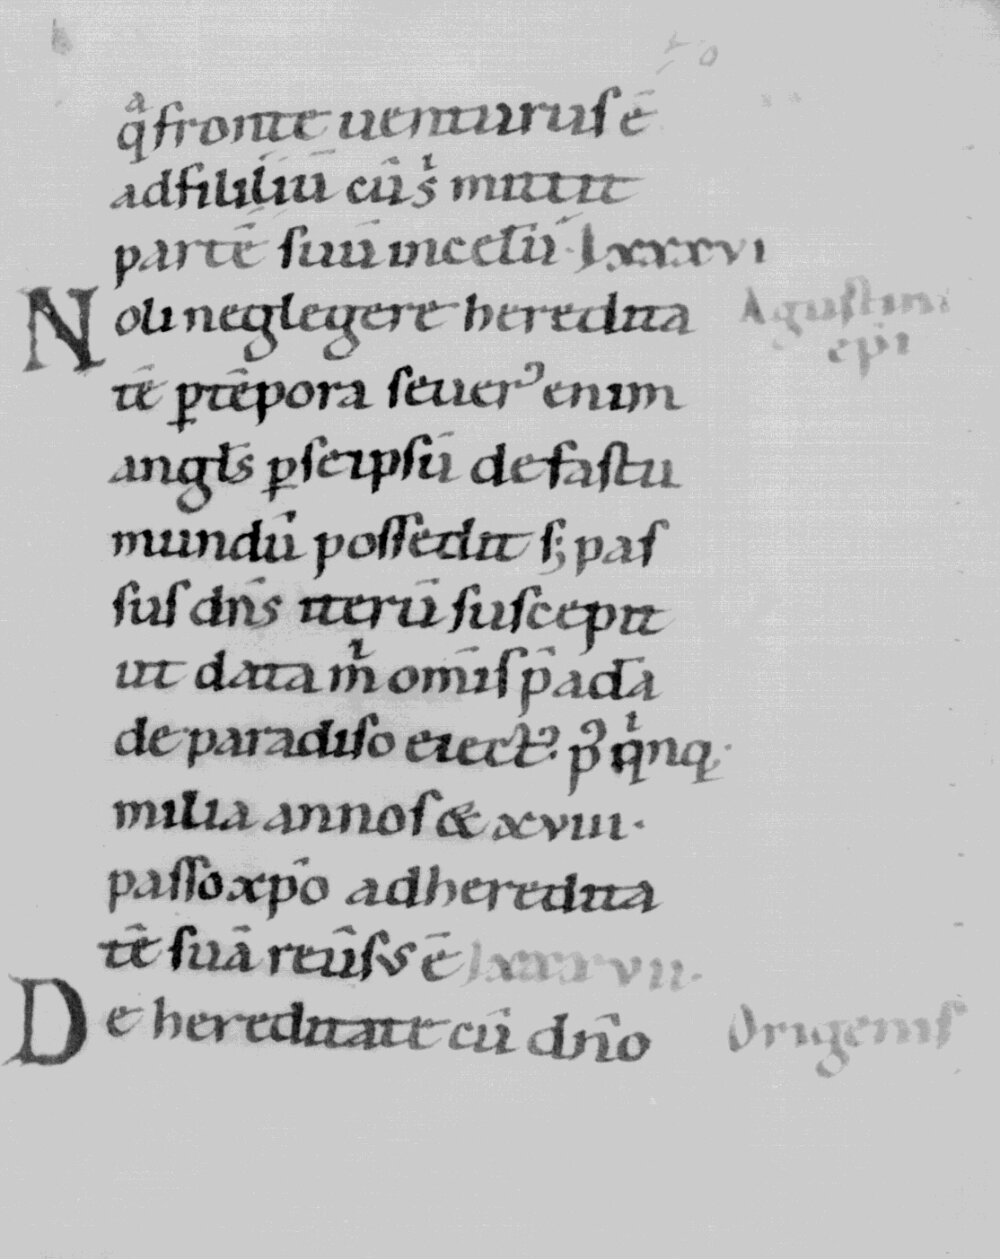 qͣ fronte uenturus ē
ad filiū́ cū̓sͥ mittit
partē suū in celū́· lxxxvi
Noli neglegere heredita Agustini
tē ꝑ tēpora seuerꝰ enim epi
angl̄s ꝑ seipsū de fastu
mundū possedit s; pas
sus dn̄s iterū suscepit
ut data mͥ om̄is p̄ ada
de paradiso eiectꝰ. pꝰ qͥnq·
milia annos & xviii·
passo xp̄o ad heredita
tē suā reūsꝰ ē lxxxvii·
De hereditate cū dn̄o Origenis